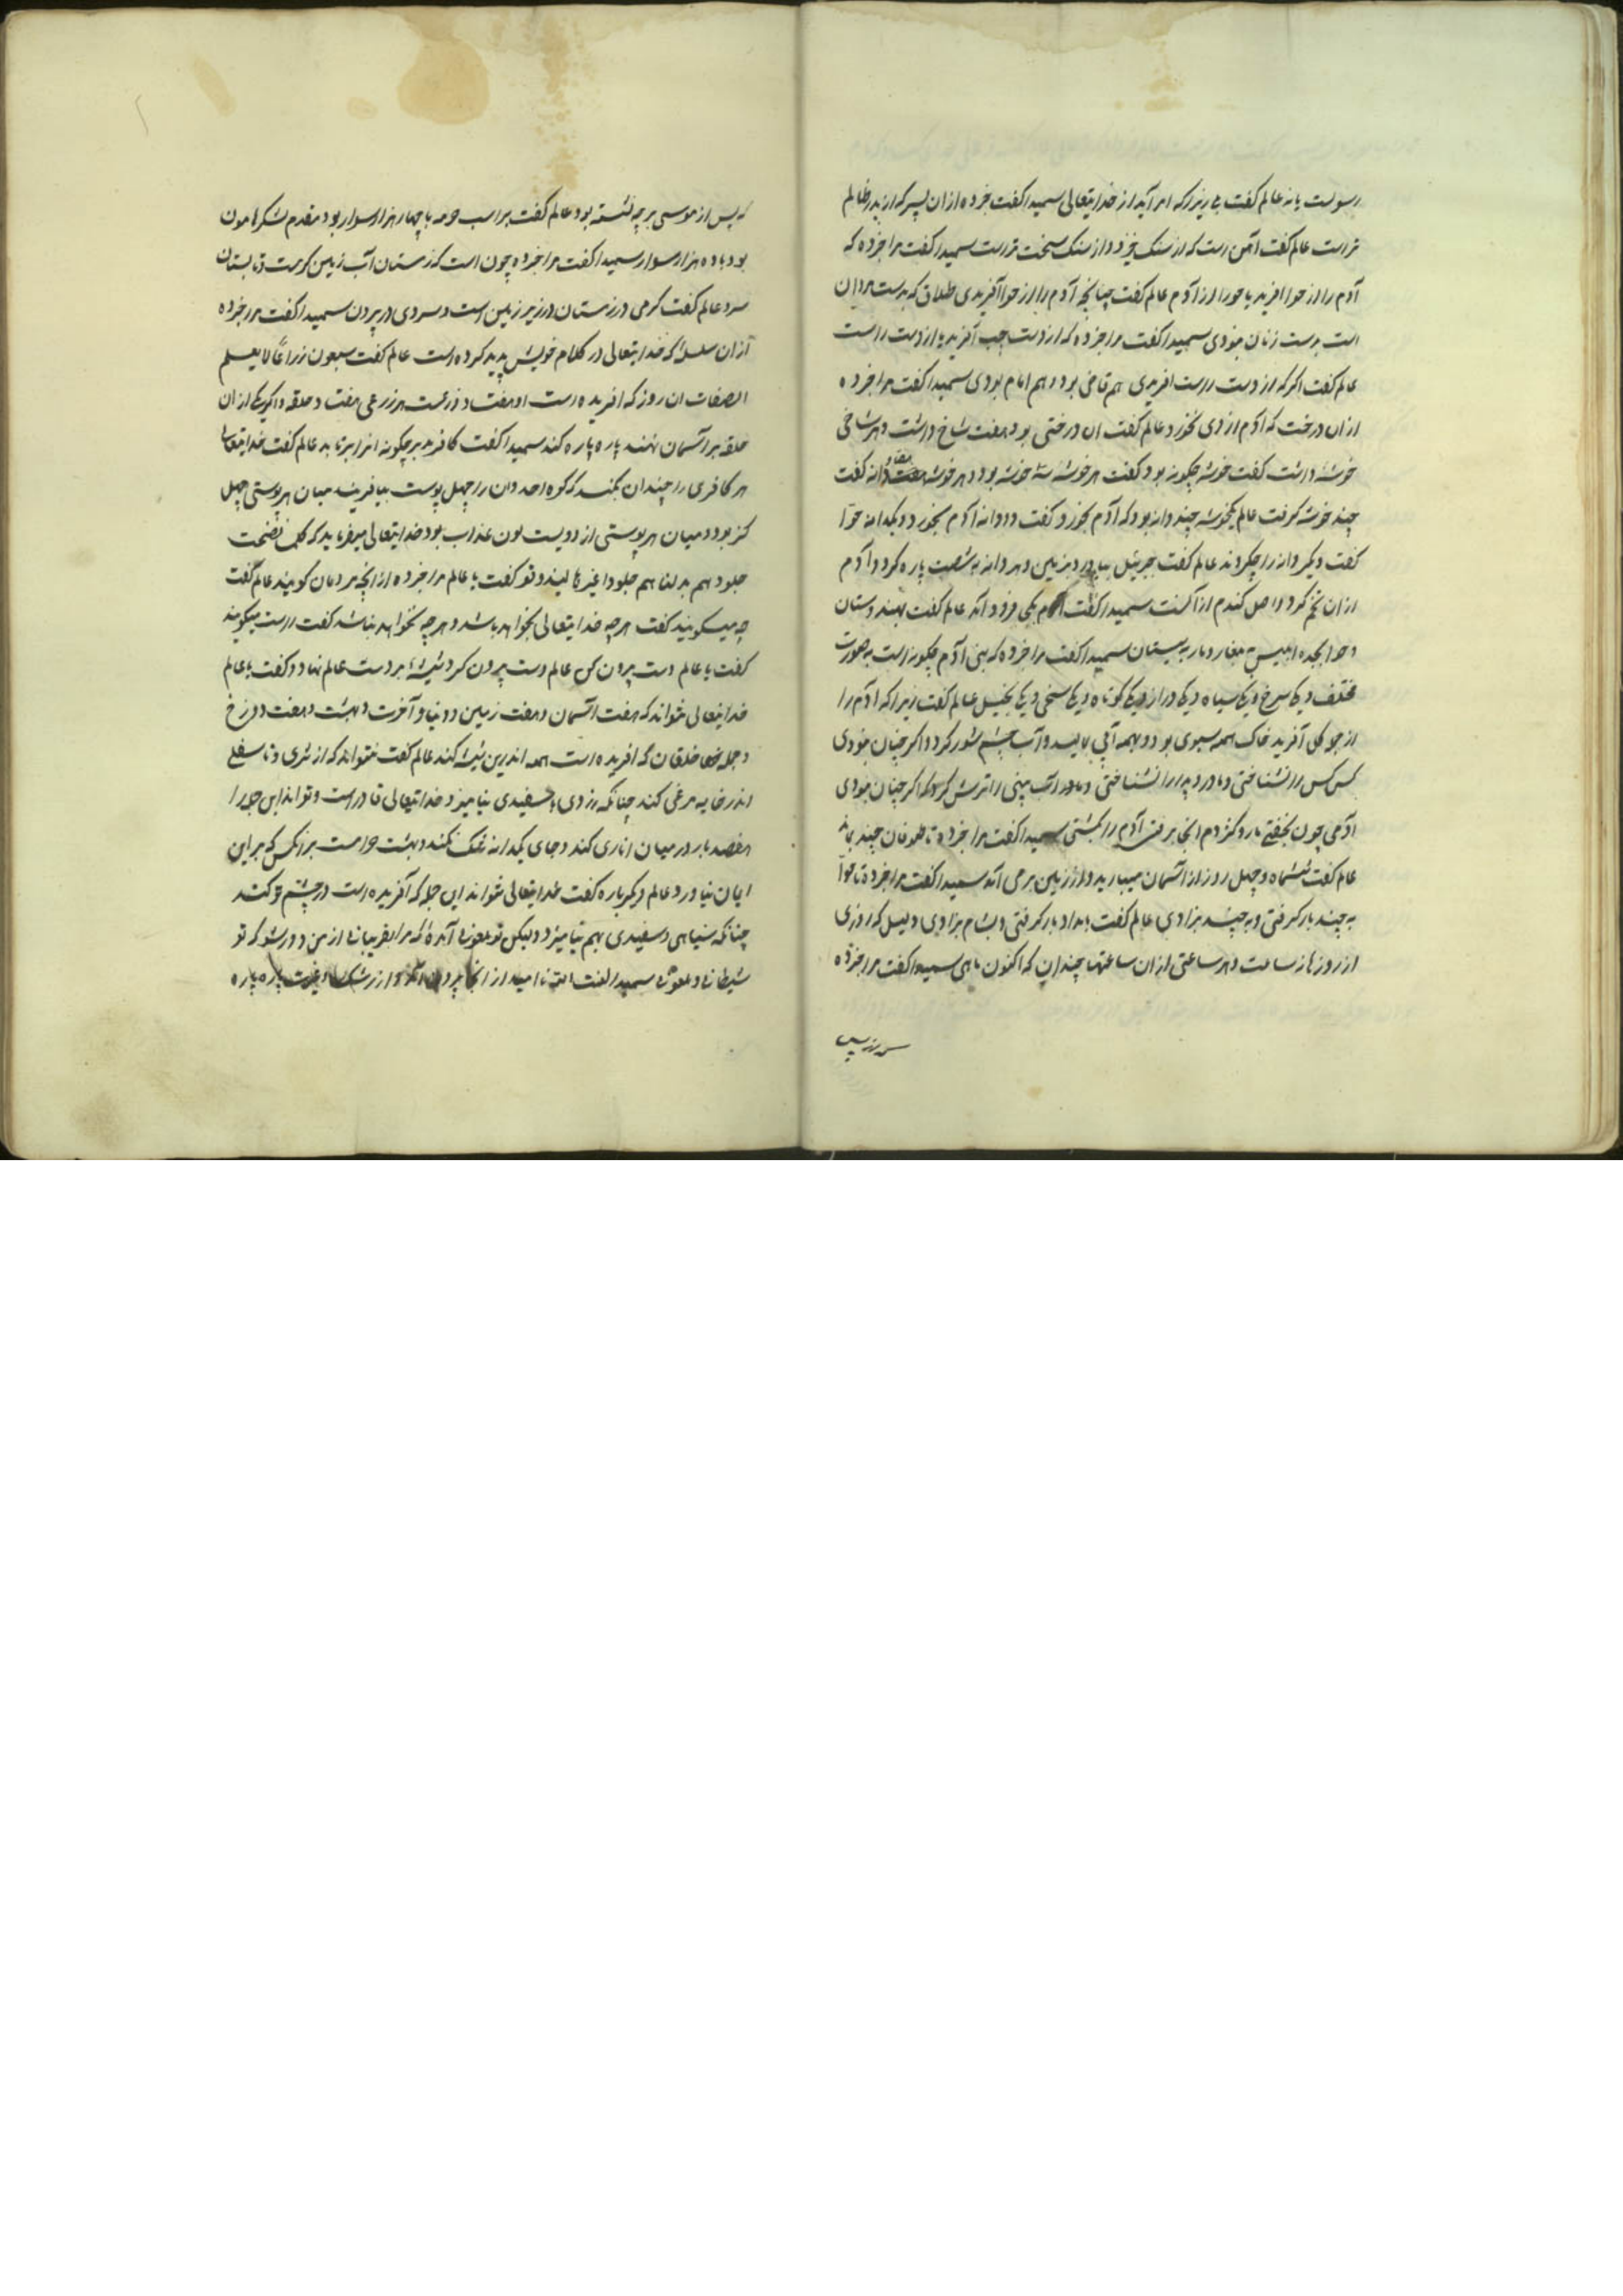 رسولست یا نه عالم گفت بی زیرا که امر آید از خدایتعالی سمیدا گفت خبر ده از ان پسر که از پدر ظالم
تر است عالم گفت آهن است که از سنک خیزد و از سنک سخت تر است سمیدا گفت مرا خبر ده که
آدم را از حوا افرید یا حورا از آدم عالم گفت چنانچه آدم را از حوا آفریدی طلاق که بدست مردان
است بدست زنان بودی سمیدا گفت مرا خبر ده که از دست چپ آفرید یا از دست راست
عالم گفت اکر که از دست راست افریدی هم قاضی بود و هم امام بودی سمیدا گفت مرا خبر ده
از ان درخت که آدم از وی بخورد عالم گفت ان درختی بود هفت شاخ داشت و هر شاخی
خوشهٔ داشت گفت خوشه چکونه بود گفت هر خوشه سه خوشه بود و هر خوشه دانه گفت
چند خوشه کرفت عالم یکخوشه چند دانه بود که آدم بخورد گفت دو دانه آدم بخورد و یکدانه حوّا
گفت دیکر دانه را چکردند عالم گفت جبرئیل بیاورد بزمین و هر دانه به شصت پاره کرد و آدم
از ان تخم کرد و اصل کندم از آنست سمیدا گفت آدم بکجا فرود آمد عالم گفت بهندوستان
و حوا بجده ابلیس و مار به سیستان سمیدا گفت مرا خبر ده که بنی آدم چکونه است به صورت
مختلف یکی سرخ یکی سیاه و یکی دراز و یکی کوتاه و یکی سخی و یکی بخیل عالم گفت زیرا که آدم را
از جو کل آفرید خاک همه بسوی بود و بهمه آبی بالید و آب چشم شور کرد و اکر چنان بودی
کس کس را نشناختی و مادر و پدر را نشناختی و آب بینی را ترش کرد که اکر چنان بودی
آدمی چون بخفتی مار و کژدم انجا برفتی آدم را بکشتی سمیدا گفت مرا خبر ده تا طوفان چند بماند
عالم گفت ششماه و چهل روز از آسمان میبارید و از زمین بر می آمد سمیدا گفت مرا خبر ده تا حوّا
به چند بار کرفتی و به چند بزادی عالم گفت بامداد بار کرفتی و بشام بزادی و لیل که از وی
از روزها ز ساعت و هر ساعتی از ان ساعتها چندان که اکنون ماهی سمیدا گفت مرا خبر ده
که پس از موسی بر چه نشسته بود عالم گفت بر اسب حومه با چهار هزار سوار بود مقدم لشکر هامون
بود با ده هزار سوار سمیدا گفت مرا خبر ده چون است که زمستان آب زمین کرمست و تابستان
سرد عالم گفت کرمی در زمستان در زیر زمین است و سردی در بیرون سمیدا گفت مرا خبر ده
از ان سلسله که خدایتعالی در کلام خویش پدید کرده است عالم گفت سبعون ذراعاً لا یعلم
الصفات ان روز که افریده است او هفتاد ذرعست هر ذرعی هفتاد حلقه و اکر یکی از ان
حلقه بر آسمان نهند پاره پاره کند سمیدا گفت کافر بد بر چکونه انرا برتابد عالم گفت خدایتعالی
هر کافری را چندان بکند که کوه احد و ان را چهل پوست بیافریند میان هر پوستی چهل
کز بود و میان هر پوستی از دویست لون عذاب بود خدایتعالی میفرماید که کلما نضجت
جلودهم بدلناهم جلودا غیرها لیذوقو گفت یا عالم مرا خبر ده از انچه مردمان کویند عالم گفت
چه میکویند گفت هر چه خدایتعالی بخواهد باشد و هر چه نخواهد نباشد گفت راست میکویند
گفت یا عالم دست بیرون کن عالم دست بیرون کرد شیشهٔ بر دست عالم نهاد و گفت یا عالم
خدایتعالی تواند که هفت آسمان و هفت زمین و دنیا و آخرت و بهشت و هفت دوزخ
و جمله خلقان که افریده است همه اندرین شیشه کند عالم گفت بتواند که از ثری و تا سفلی
اندر خایه مرغی کند چنانکه زردی با سفیدی نیامیزد خدایتعالی قادر است و تواند این جمله را
هفصد بار در میان اناری کند و جای یکدانه تنک نکند و بهشت حرامست بر انکس که بر این
ایمان نیاورد و عالم دیکر باره گفت خدایتعالی تواند این جمله که آفریده است در چشم تو کند
چنانکه سیاهی و سفیدی بهم نیامیزد و لیکن تو ملعونی آمدهٔ که مرا بفریبانی از من دور شو که تو
شیطانی و ملعونی سمیدا از انجا بیرون آمد و از رشک و غیرت پاره پاره